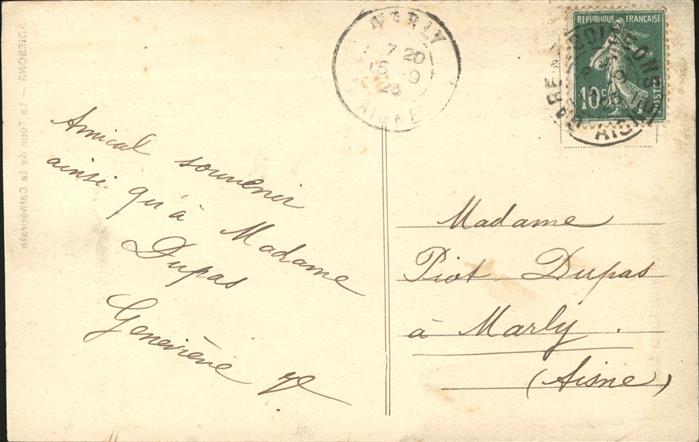 SOISSONS — La Tour de La Cathédrale
Amical souvenir
ainsi qu'à Madame
Dupas
Geneviève
MARLY
7 20
AISNE
RÉPUBLIQUE FRANÇAISE
10c
POSTES
GARE DE SOISSONS
AISNE
Madame
Piot Dupas
à Marly.
(Aisne)